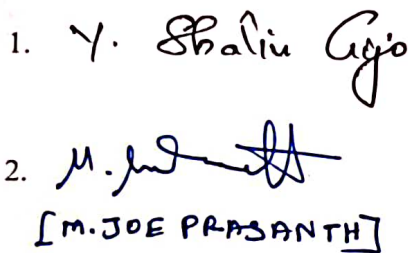 1. Y. Shalin Gijo
2. M.
[M. JOE PRASANTH]